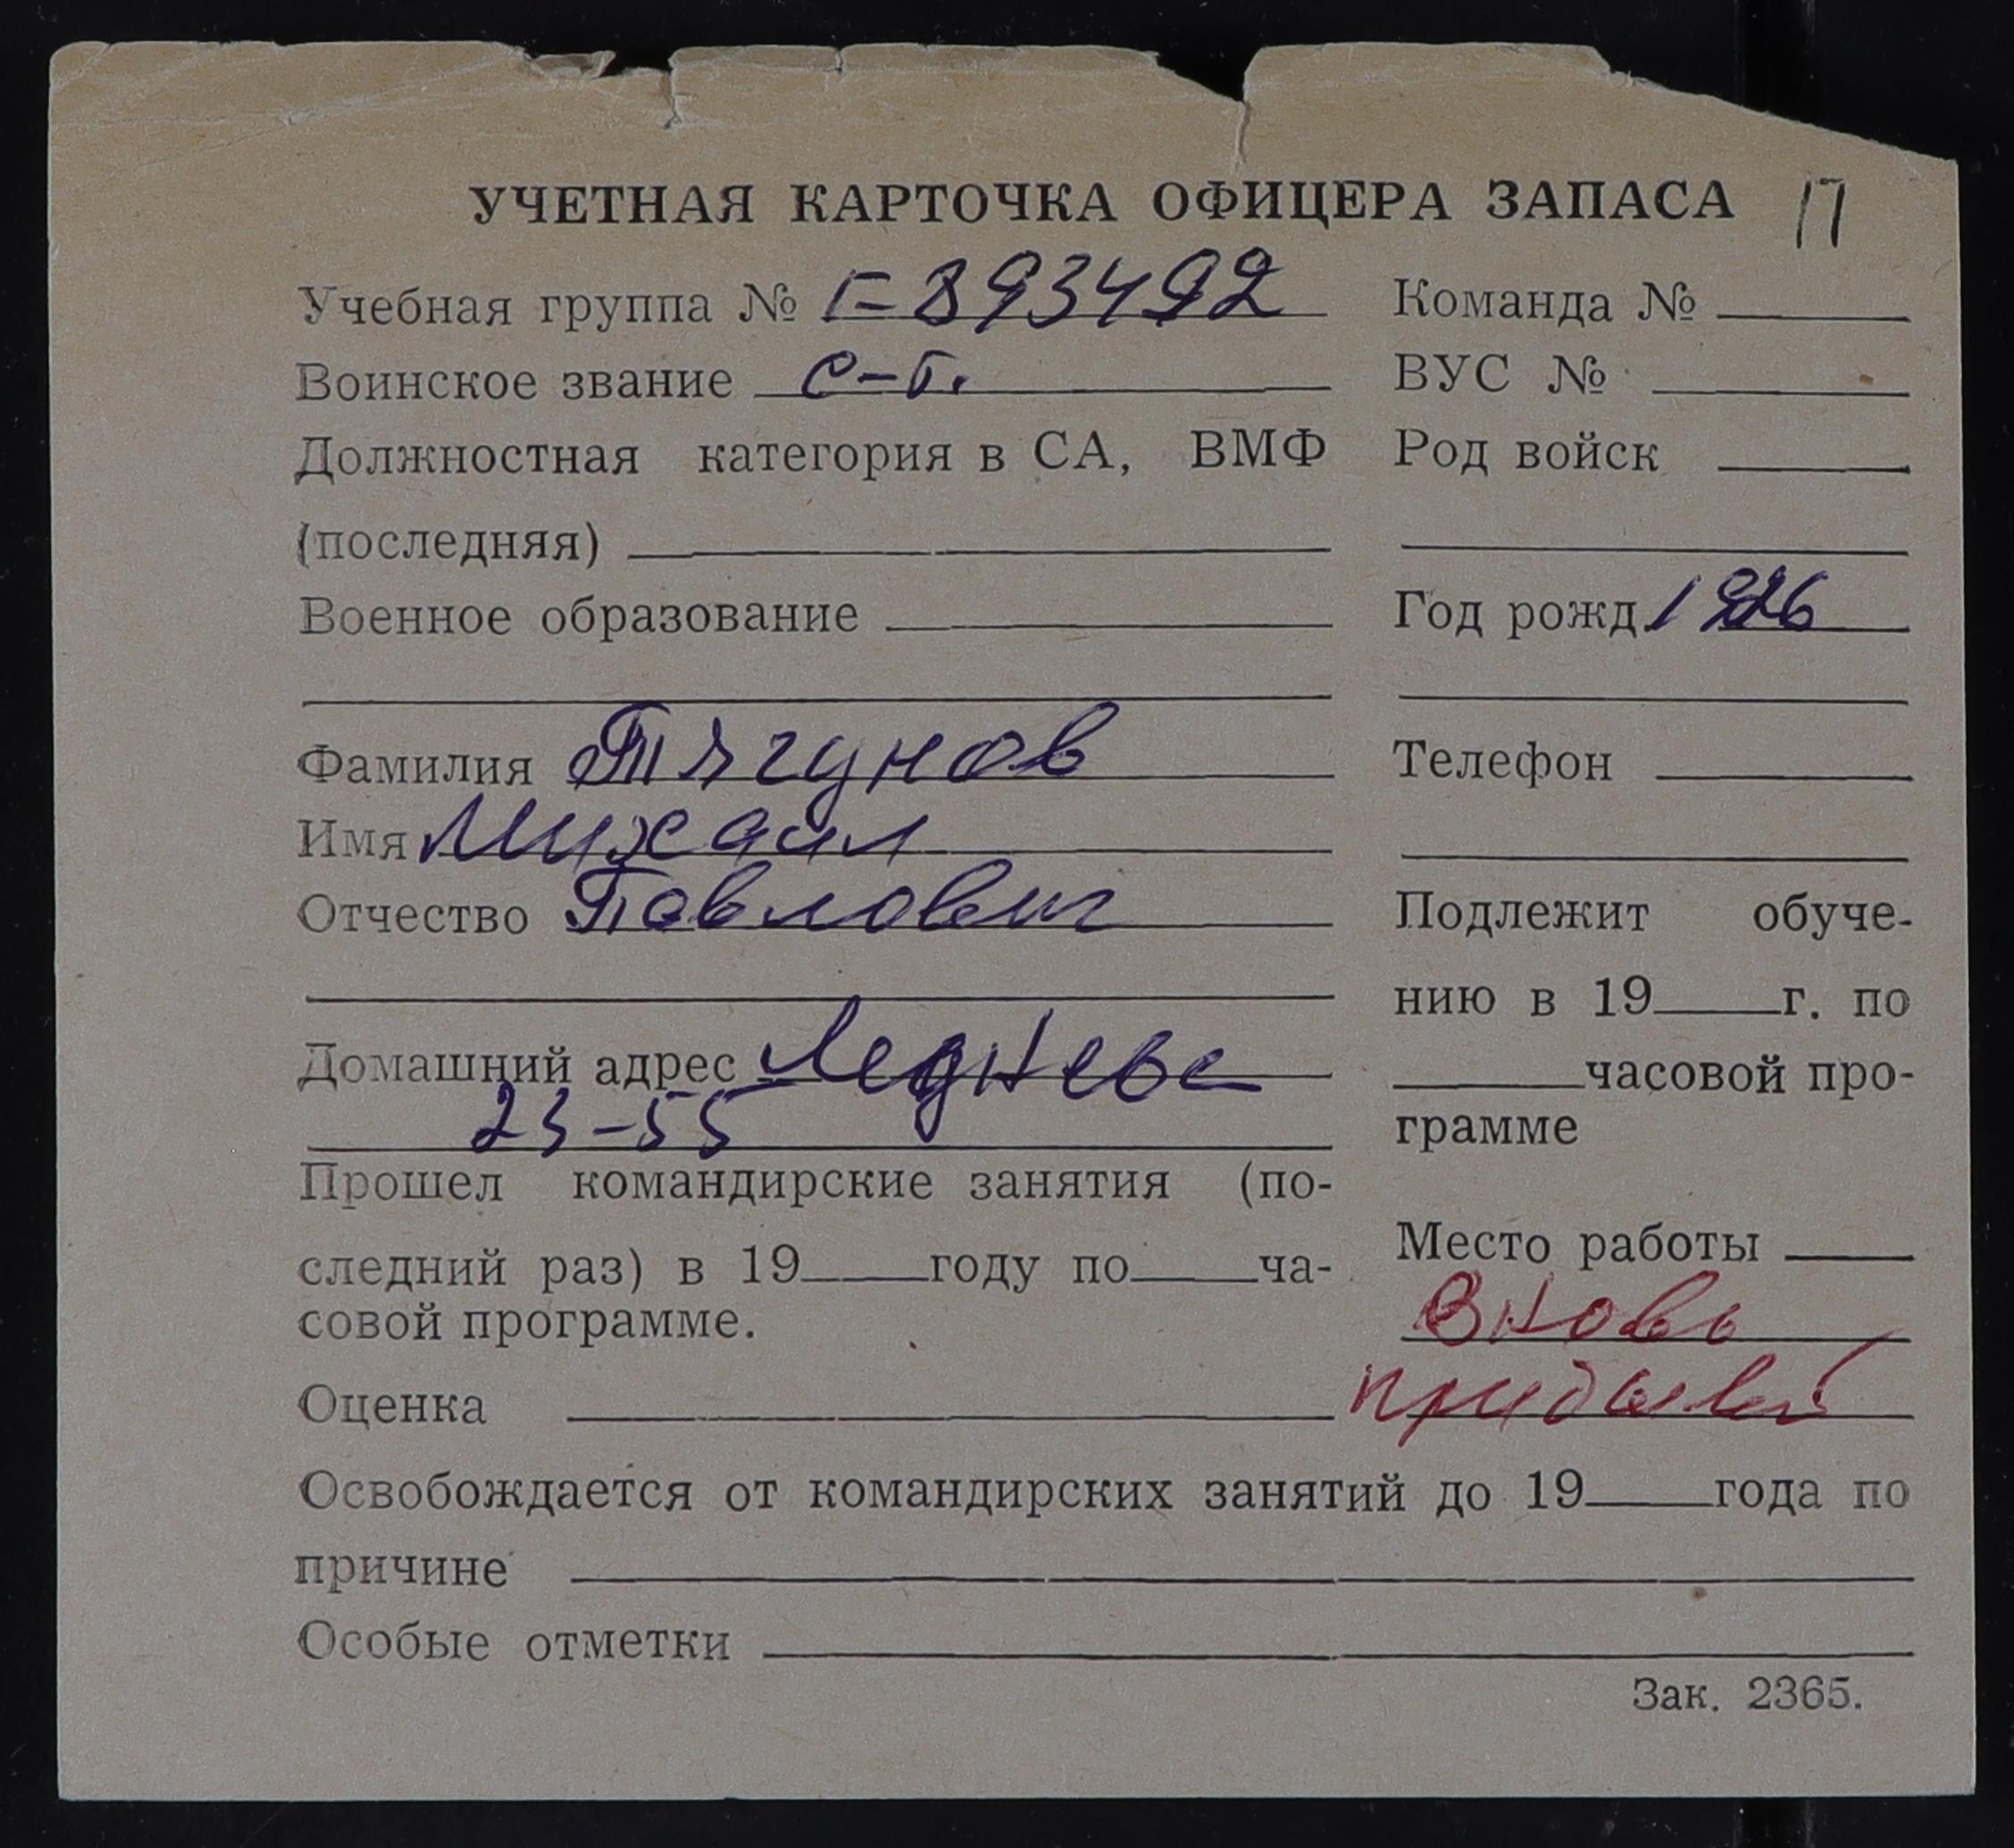 УЧЕТНАЯ КАРТОЧКА ОФИЦЕРА ЗАПАСА 17
Учебная группа № Г-893492
Воинское звание с-т.
Должностная категория в СА, ВМФ
(последняя)
Военное образование
Фамилия Тягунов
Имя Михаил
Отчество Павлович
Домашний адрес Леднева
23-55
Прошел командирские занятия (по-
следний раз) в 19 году по ча-
совой программе.
Оценка
Команда №
ВУС №
Род войск
Год рожд. 1926
Телефон
Подлежит обуче-
нию в 19 г. по
часовой про-
грамме
Место работы
Вновь
прибывш
Освобождается от командирских занятий до 19 года по
причине
Особые отметки
Зак. 2365.